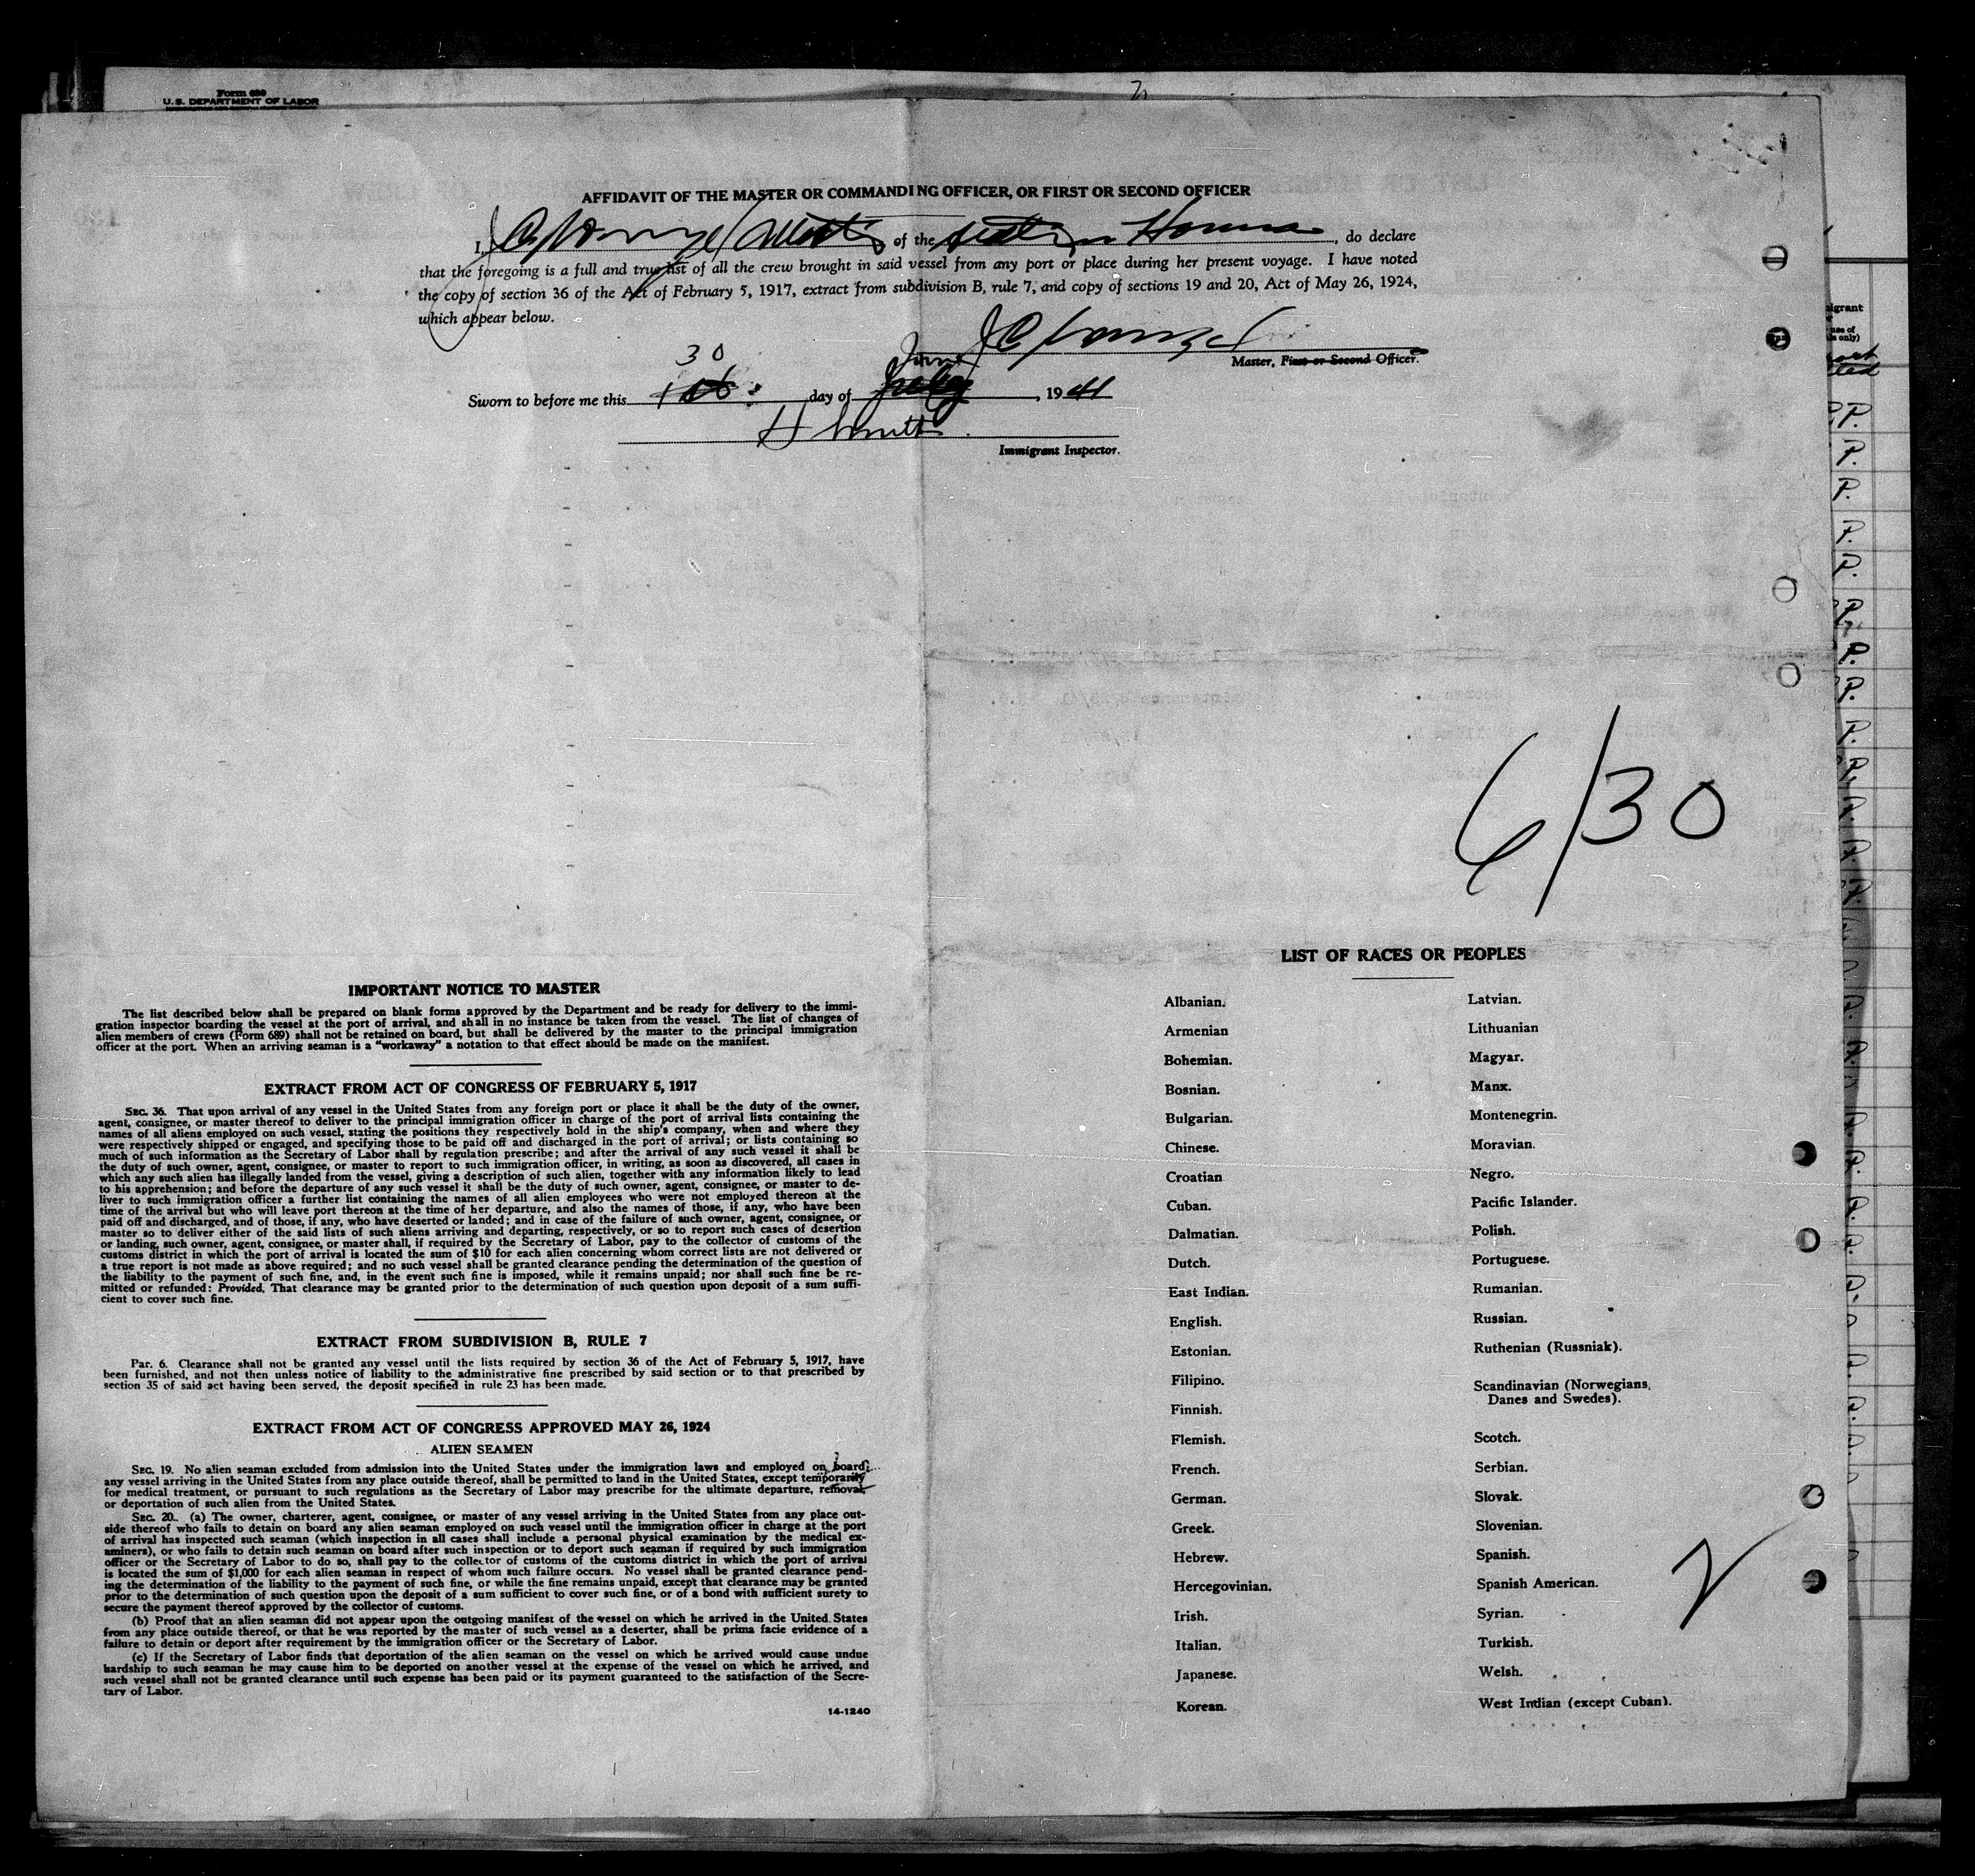 Form 689
U.S. DEPARTMENT OF LABOR
AFFIDAVIT OF THE MASTER OR COMMANDING OFFICER, OR FIRST OR SECOND OFFICER
I, of the , do declare
that the foregoing is a full and true list of all the crew brought in said vessel from any port or place during her present voyage. I have noted
the copy of section 36 of the Act of February 5, 1917, extract from subdivision B, rule 7, and copy of sections 19 and 20, Act of May 26, 1924,
which appear below.
Master, First or Second Officer.
30 June
Sworn to before me this day of , 19 41
H Smith
Immigrant Inspector.
6/30
IMPORTANT NOTICE TO MASTER
The list described below shall be prepared on blank forms approved by the Department and be ready for delivery to the immi-
gration inspector boarding the vessel at the port of arrival, and shall in no instance be taken from the vessel. The list of changes of
alien members of crews (Form 689) shall not be retained on board, but shall be delivered by the master to the principal immigration
officer at the port. When an arriving seaman is a "workaway" a notation to that effect should be made on the manifest.
EXTRACT FROM ACT OF CONGRESS OF FEBRUARY 5, 1917
SEC. 36. That upon arrival of any vessel in the United States from any foreign port or place it shall be the duty of the owner,
agent, consignee, or master thereof to deliver to the principal immigration officer in charge of the port of arrival lists containing the
names of all aliens employed on such vessel, stating the positions they respectively hold in the ship's company, when and where they
were respectively shipped or engaged, and specifying those to be paid off and discharged in the port of arrival; or lists containing so
much of such information as the Secretary of Labor shall by regulation prescribe; and after the arrival of any such vessel it shall be
the duty of such owner, agent, consignee, or master to report to such immigration officer, in writing, as soon as discovered, all cases in
which any such alien has illegally landed from the vessel, giving a description of such alien, together with any information likely to lead
to his apprehension; and before the departure of any such vessel it shall be the duty of such owner, agent, consignee, or master to de-
liver to such immigration officer a further list containing the names of all alien employees who were not employed thereon at the
time of the arrival but who will leave port thereon at the time of her departure, and also the names of those, if any, who have been
paid off and discharged, and of those, if any, who have deserted or landed; and in case of the failure of such owner, agent, consignee, or
master so to deliver either of the said lists of such aliens arriving and departing, respectively, or so to report such cases of desertion
or landing, such owner, agent, consignee, or master shall, if required by the Secretary of Labor, pay to the collector of customs of the
customs district in which the port of arrival is located the sum of $10 for each alien concerning whom correct lists are not delivered or
a true report is not made as above required; and no such vessel shall be granted clearance pending the determination of the question of
the liability to the payment of such fine, and, in the event such fine is imposed, while it remains unpaid; nor shall such fine be re-
mitted or refunded: Provided, That clearance may be granted prior to the determination of such question upon deposit of a sum suffi-
cient to cover such fine.
EXTRACT FROM SUBDIVISION B, RULE 7
Par. 6. Clearance shall not be granted any vessel until the lists required by section 36 of the Act of February 5, 1917, have
been furnished, and not then unless notice of liability to the administrative fine prescribed by said section or to that prescribed by
section 35 of said act having been served, the deposit specified in rule 23 has been made.
EXTRACT FROM ACT OF CONGRESS APPROVED MAY 26, 1924
ALIEN SEAMEN
SEC. 19. No alien seaman excluded from admission into the United States under the immigration laws and employed on board
any vessel arriving in the United States from any place outside thereof, shall be permitted to land in the United States, except temporarily
for medical treatment, or pursuant to such regulations as the Secretary of Labor may prescribe for the ultimate departure, removal,
or deportation of such alien from the United States.
SEC. 20. (a) The owner, charterer, agent, consignee, or master of any vessel arriving in the United States from any place out-
side thereof who fails to detain on board any alien seaman employed on such vessel until the immigration officer in charge at the port
of arrival has inspected such seaman (which inspection in all cases shall include a personal physical examination by the medical ex-
aminers), or who fails to detain such seaman on board after such inspection or to deport such seaman if required by such immigration
officer or the Secretary of Labor to do so, shall pay to the collector of customs of the customs district in which the port of arrival
is located the sum of $1,000 for each alien seaman in respect of whom such failure occurs. No vessel shall be granted clearance pend-
ing the determination of the liability to the payment of such fine, or while the fine remains unpaid, except that clearance may be granted
prior to the determination of such question upon the deposit of a sum sufficient to cover such fine, or of a bond with sufficient surety to
secure the payment thereof approved by the collector of customs.
(b) Proof that an alien seaman did not appear upon the outgoing manifest of the vessel on which he arrived in the United States
from any place outside thereof, or that he was reported by the master of such vessel as a deserter, shall be prima facie evidence of a
failure to detain or deport after requirement by the immigration officer or the Secretary of Labor.
(c) If the Secretary of Labor finds that deportation of the alien seaman on the vessel on which he arrived would cause undue
hardship to such seaman he may cause him to be deported on another vessel at the expense of the vessel on which he arrived, and
such vessel shall not be granted clearance until such expense has been paid or its payment guaranteed to the satisfaction of the Secre-
tary of Labor.
14-1240
LIST OF RACES OR PEOPLES
Albanian.
Armenian
Bohemian.
Bosnian.
Bulgarian.
Chinese.
Croatian
Cuban.
Dalmatian.
Dutch.
East Indian.
English.
Estonian.
Filipino.
Finnish.
Flemish.
French.
German.
Greek.
Hebrew.
Hercegovinian.
Irish.
Italian.
Japanese.
Korean.
Latvian.
Lithuanian
Magyar.
Manx.
Montenegrin.
Moravian.
Negro.
Pacific Islander.
Polish.
Portuguese.
Rumanian.
Russian.
Ruthenian (Russniak).
Scandinavian (Norwegians,
Danes and Swedes).
Scotch.
Serbian.
Slovak.
Slovenian.
Spanish.
Spanish American.
Syrian.
Turkish.
Welsh.
West Indian (except Cuban).